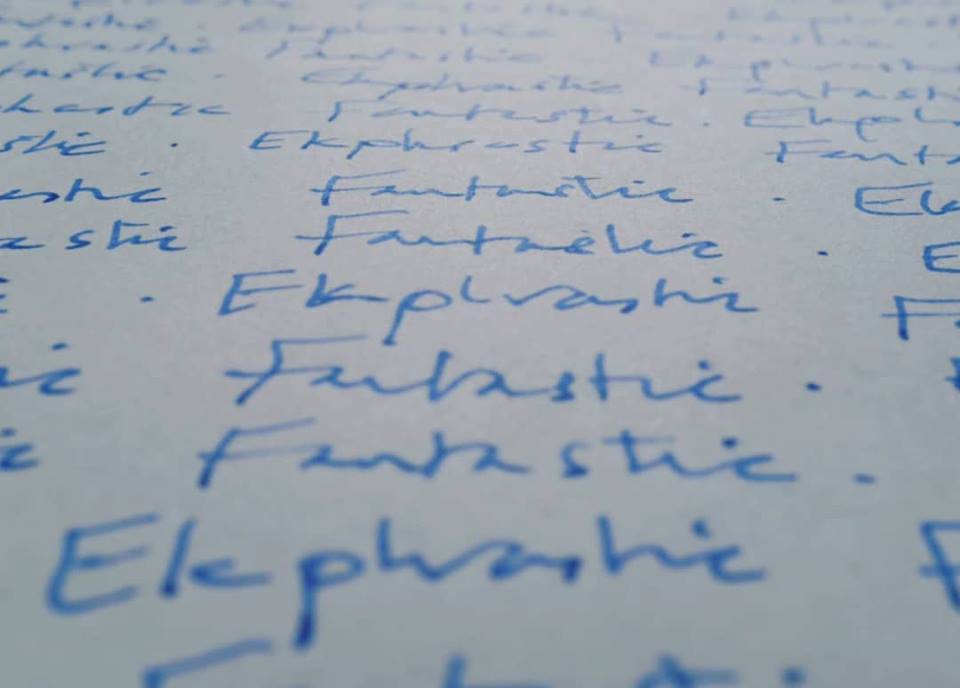 Fantastic
Ekphrastic Fantastic
Fantastic . Ekph
stic . Ekphrastic Fanta
astic Fantastic . Ek
astic Fantastic . E
. Ekphrastic F
ic Fantastic .
ic Fantastic .
Ekphrastic F